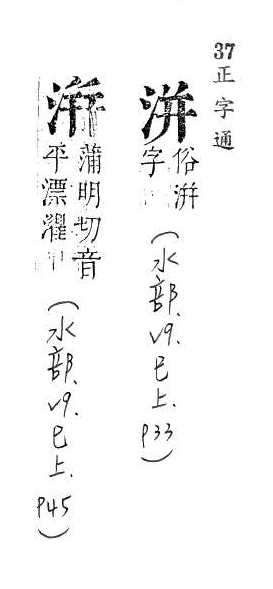 37正字通
洴
俗洴
字
(水部.V9.巳上.P33)
洴
蒲明切音
平漂濯
(水部.V9.巳上.P45)